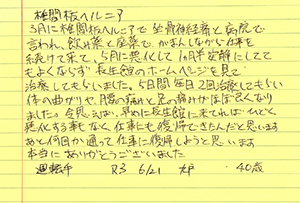 椎間板ヘルニア
3月に椎間板ヘルニアで坐骨神経痛と病院で
言われ、飲み薬と座薬で、がまんしながら仕事を
続けて来て、5月に悪化して1ヶ月半安静にしてて
もよくならず長生館のホームページを見て
治療してもらいました。5日間毎日2回治療してもらい
体の曲がりや、腰の痛みと足の痛みがほぼ良くなり
ました。今思えば、早めに長生館に来てれば、ひどく
悪化する事もなく仕事にも復帰できたんだと思います
あと何日か通って仕事に復帰しようと思います
本当にありがとうございました
運転手 R3 6/21 ♂ 40歳